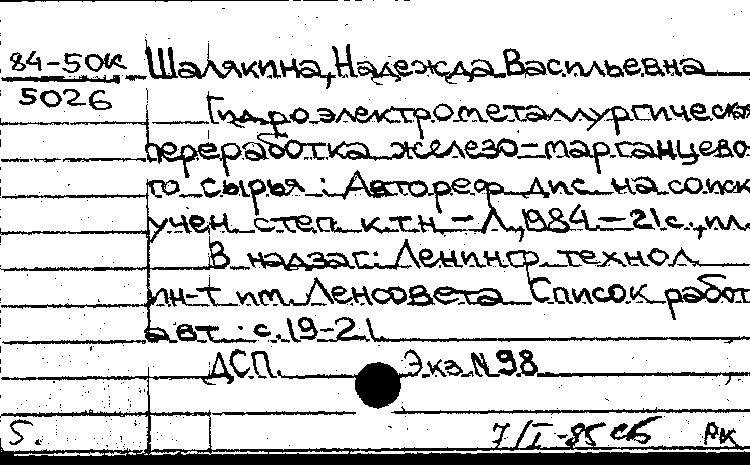 84-50к Шалякина, Надежда Васильевна
5026
Гидроэлектрометаллургическ
переработка железо-марганцево-
го сырья : Автореф дис. на соиск
учен степ к.т.н – Л., 1984. – 21 с., ил.
В надзаг: Ленингр технол
ин-т им. Ленсовета Список работ
авт : с. 19-21
ДСП. Экз N 98
5. 7/I-85 сб РК